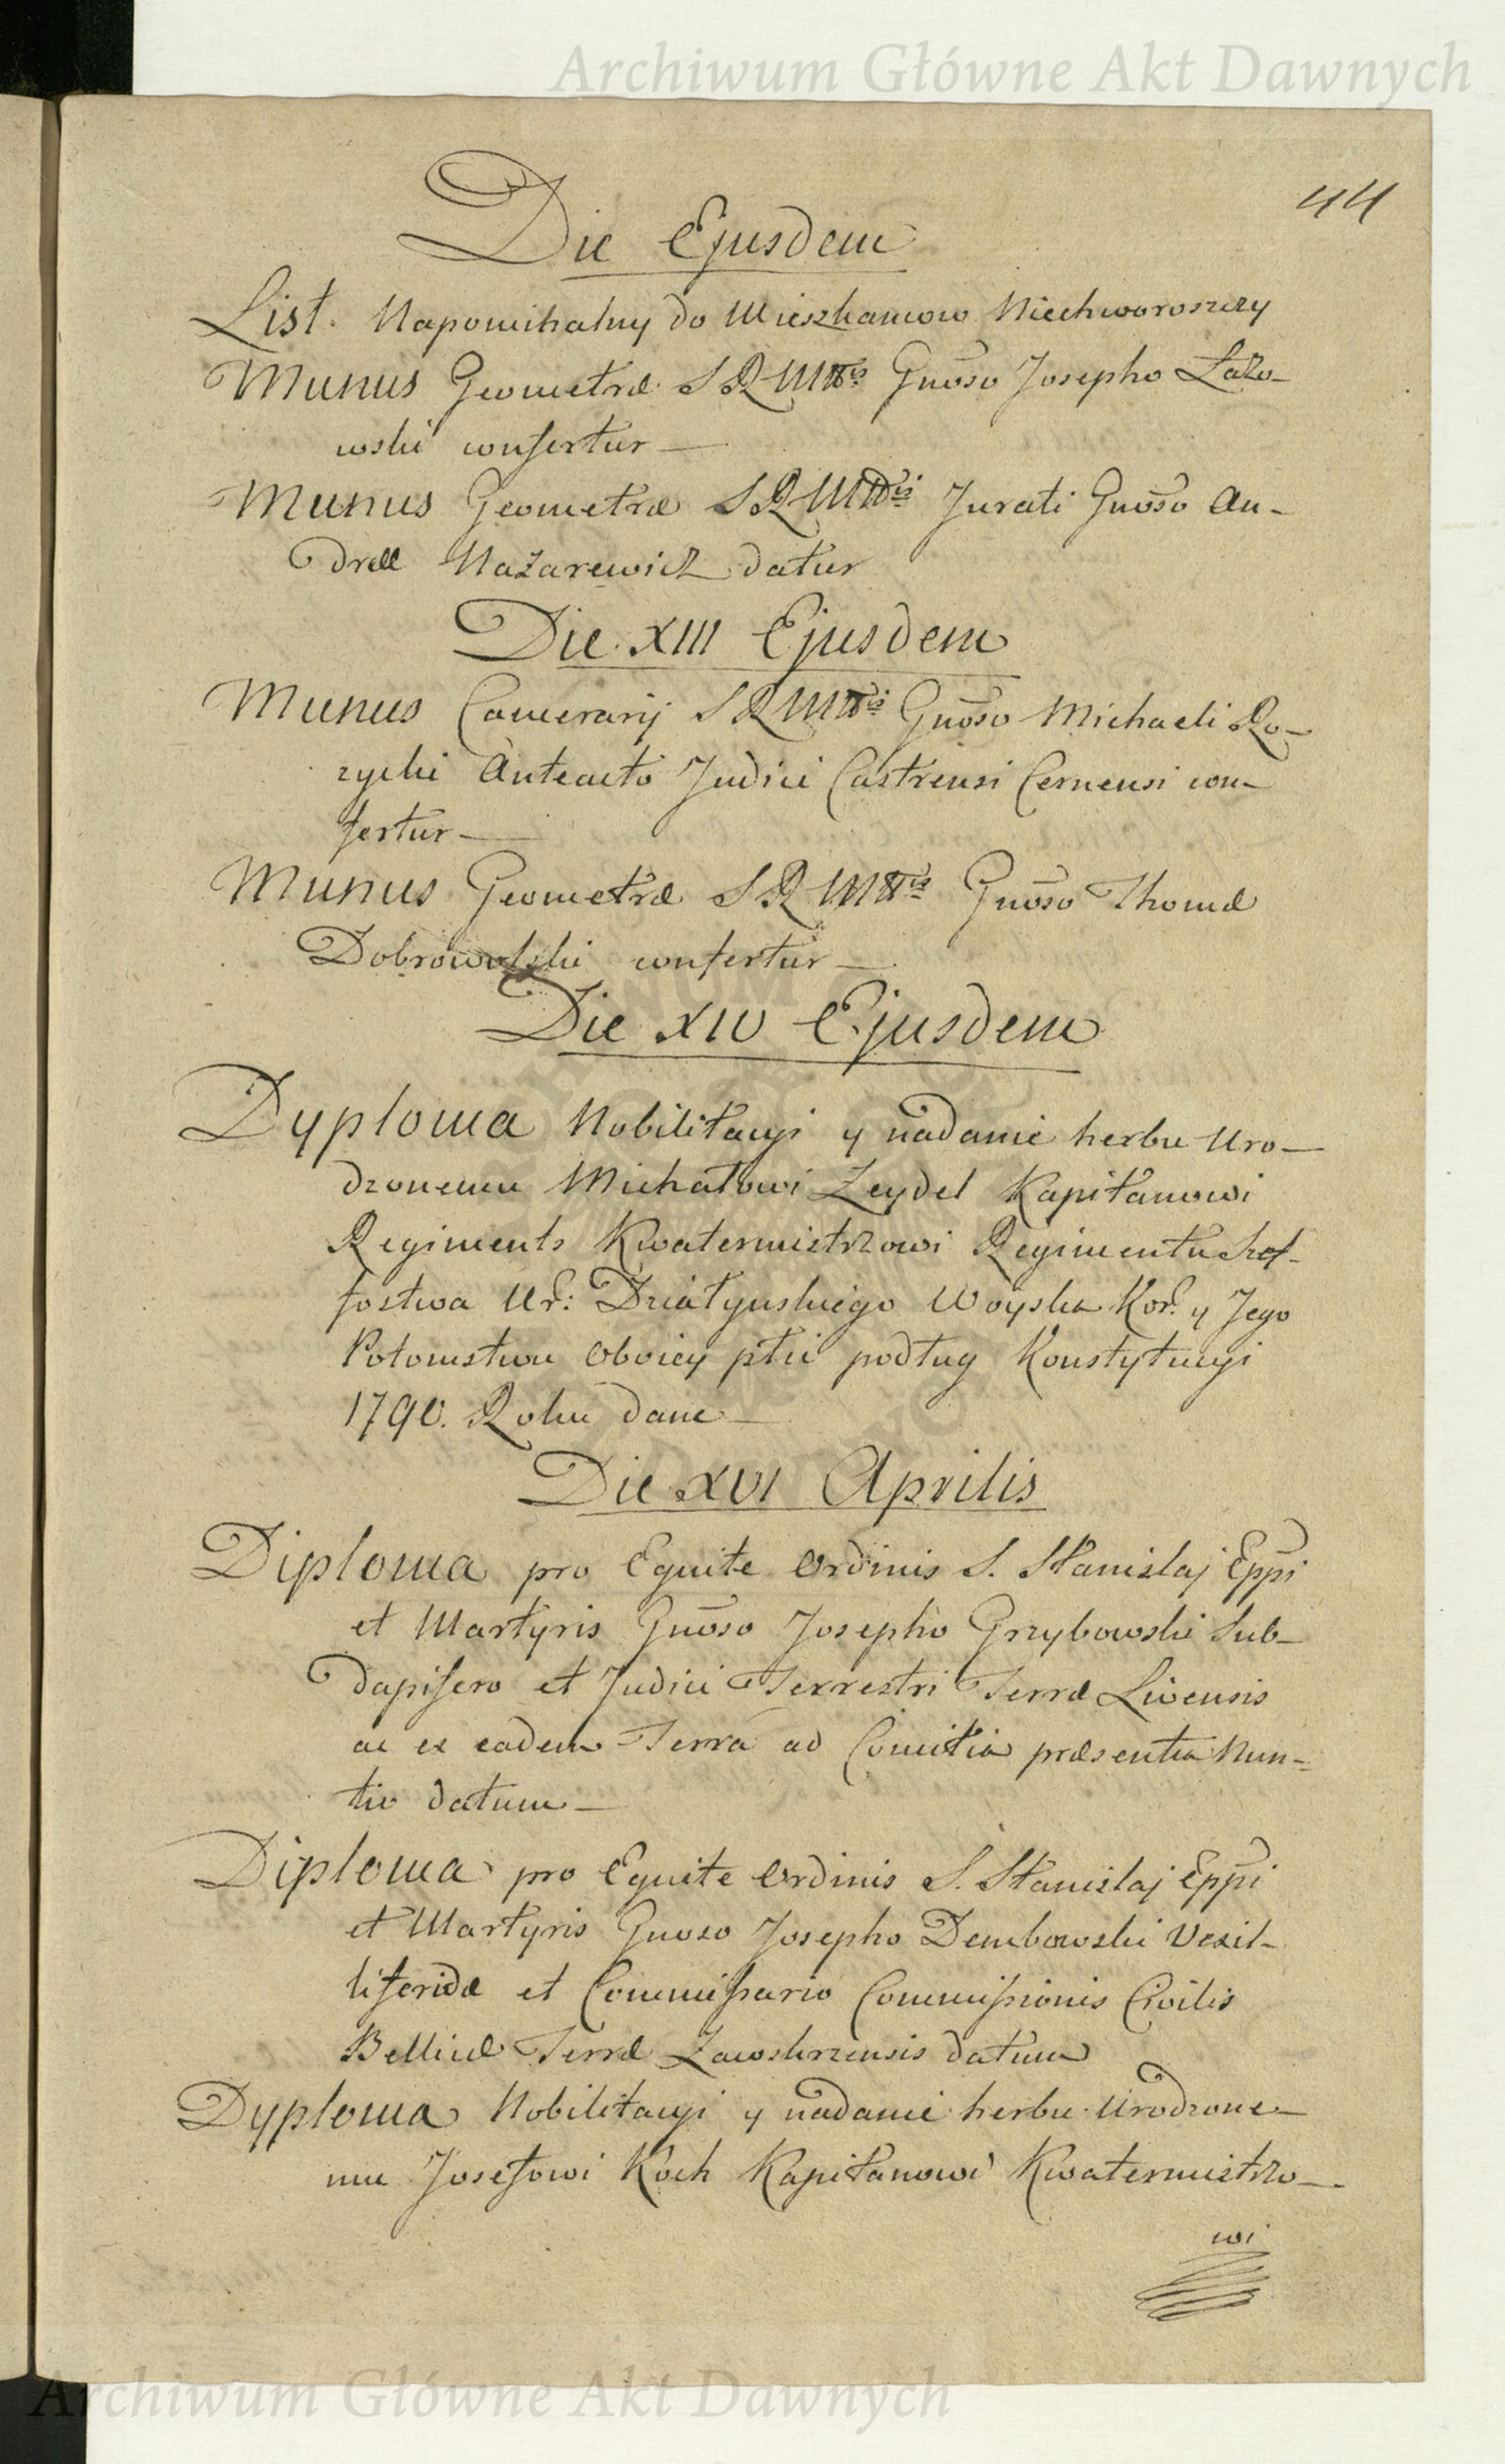 Archiwum Główne Akt Dawnych
44
Die Ejusdem
List Napominalny do Mieszkancow Niechworoszczy
Munus Geometræ S R Mttis Gnoso Josepho Lazo-
wski confertur
Munus Geometræ S R Mttis Jurati Gnoso An-
dreæ Nazarewicz datur
Die XIII Ejusdem
Munus Camerarij S R Mttis Gnoso Michaeli Ro-
zycki Anteacto Judici Castrensi Cernensi con-
fertur
Munus Geometræ S R Mttis Gnoso Thomæ
Dobrowolski confertur
Die XIV Ejusdem
Dyploma Nobilitacyi y nadanie herbu Uro-
dzonemu Michałowi Zeydel Kapitanowi
Regiments Kwatermistrzowi Regimentu Szef-
fostwa Ur: Działynskiego Woyska Kor. y Jego
Potomstwu Oboiey płci podług Konstytucyi
1790. Roku dane
Die XVI Aprilis
Diploma pro Equite Ordinis S. Stanislaj Eppi
et Martyris Gnoso Josepho Grzybowski Sub-
dapifero et Judici Terrestri Terræ Livensis
ac ex eadem Terra ad Comitia præsentia Nun-
tio datum
Diploma pro Equite Ordinis S. Stanislaj Eppi
et Martyris Gnoso Josepho Dembowski Vexil-
liferidæ et Commissario Commissionis Civilis
Bellicæ Terræ Zawskrzensis datum
Dyploma Nobilitacyi y nadanie herbu Urodzone-
mu Josefowi Koch Kapitanowi Kwatermistrzo-
wi
Archiwum Główne Akt Dawnych